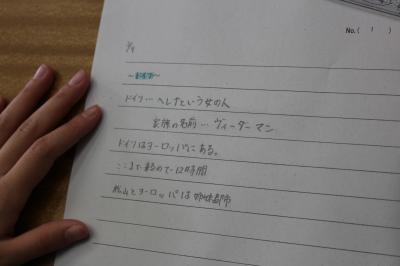 No.( 1 )
ドイツ…ヘレナという女の人
家族の名前…ヴィーダーマン
ドイツはヨーロッパにある。
ここまで 約 12時間
松山とヨーロッパは姉妹都市